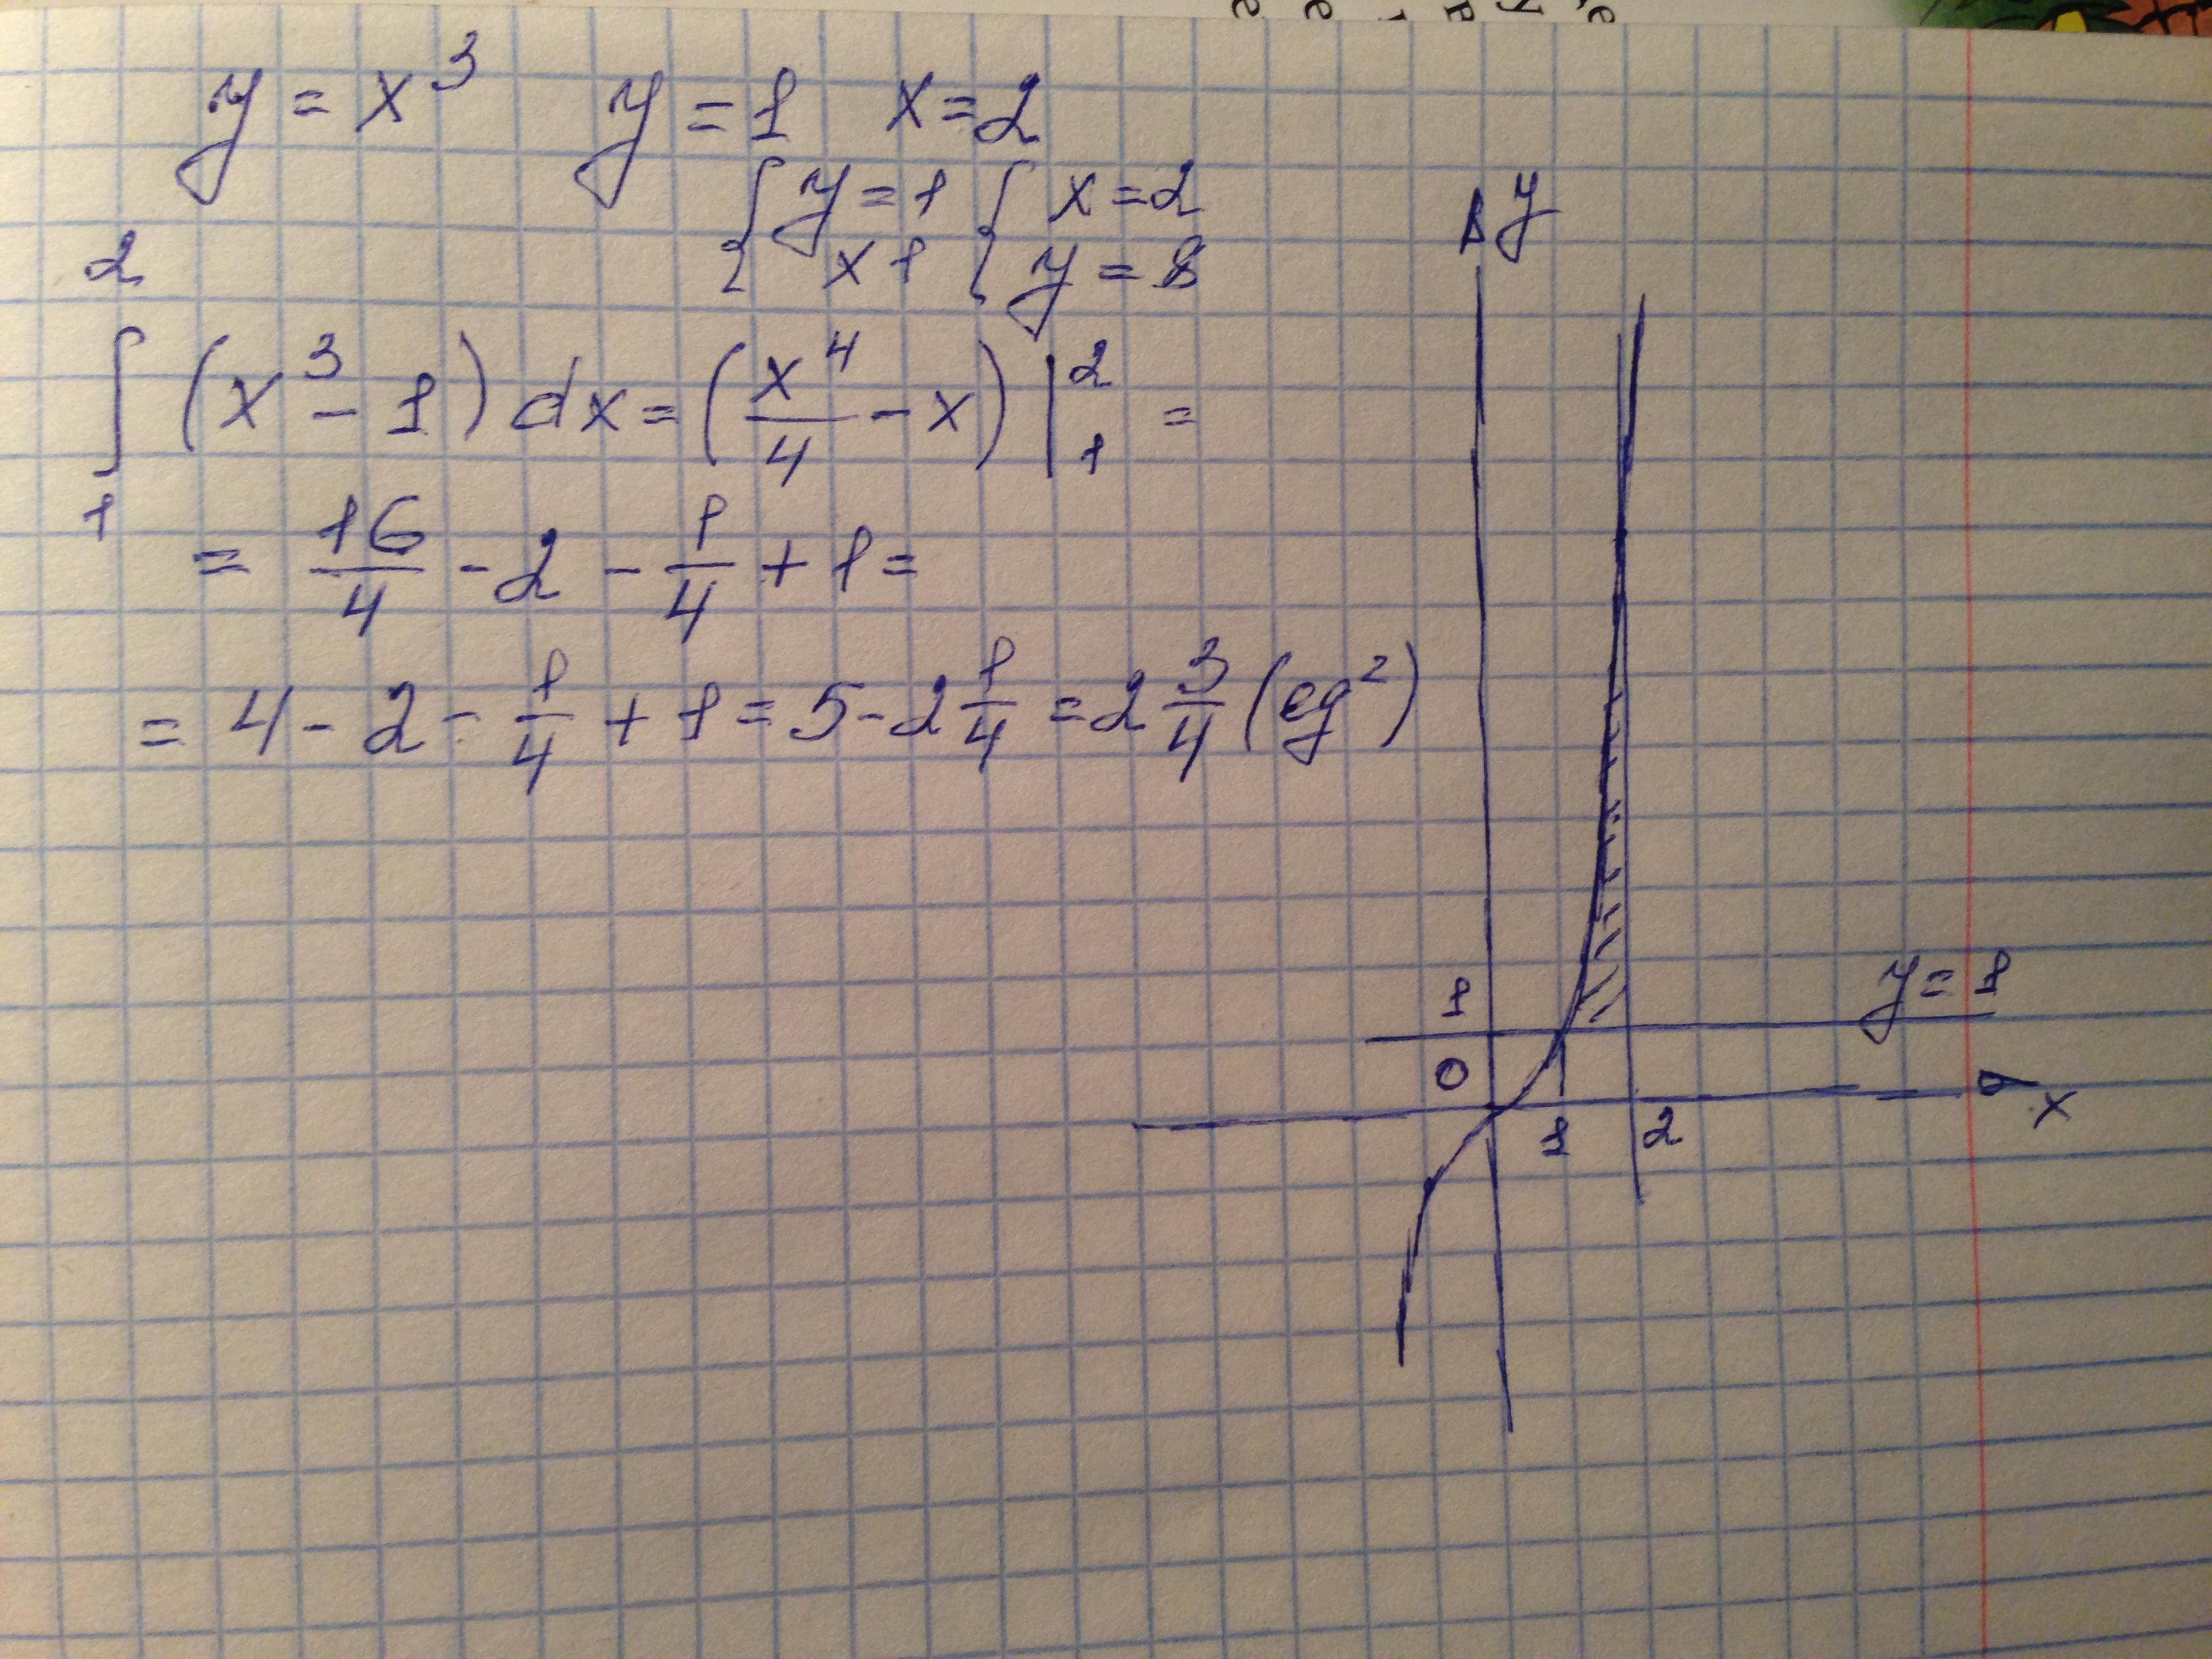 y = x³ y = 1 x = 2
{ y = 1 { x = 2
x 1 y = 8
∫₁² (x³ - 1) dx = (x⁴/4 - x) |₁² =
= 16/4 - 2 - 1/4 + 1 =
= 4 - 2 - 1/4 + 1 = 5 - 2 1/4 = 2 3/4 (ед²)
y
1
y = 1
0
1
2
x